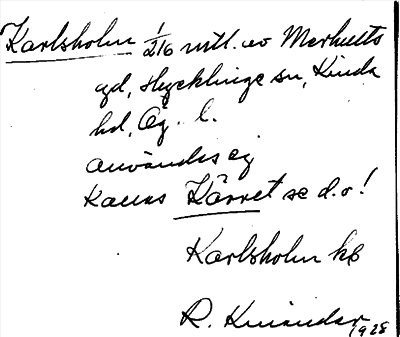 Karlsholm 1/216 mtl. av Merhults
gd, Hycklinge sn, Kinda
hd, Ög. l.
användes ej
kallas Kärret se d.o!
Karlsholm hb
R. Kinander
1928